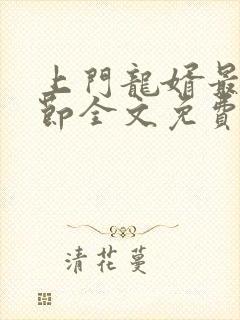 上門龍婿最
節全文免費
清花蔓